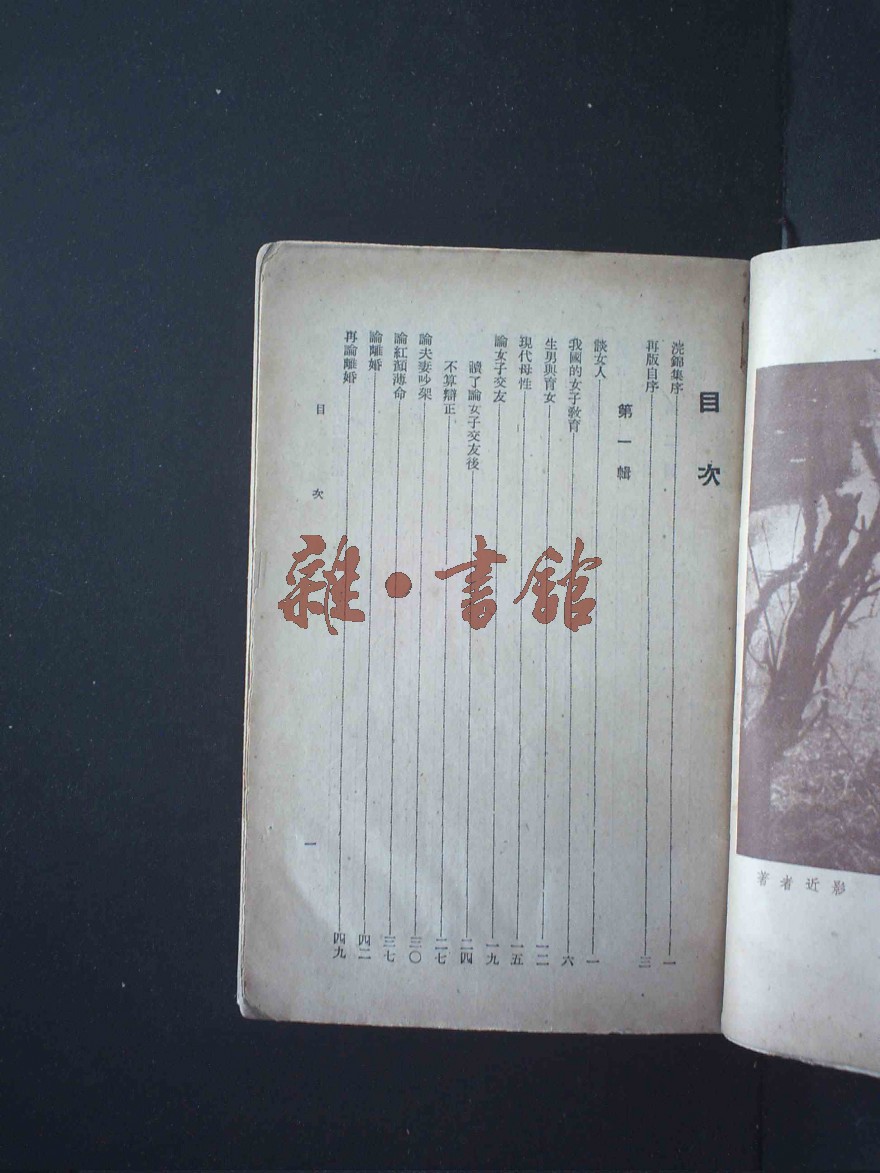 目次
浣錦集序 一
再版自序 三
第一輯
談女人 一
我國的女子教育 六
生男與育女 一二
現代母性 一五
論女子交友 一九
讀了論女子交友後 二四
不算辯正 二七
論夫妻吵架 三〇
論紅顏薄命 三七
論離婚 四二
再論離婚 四九
目次 一
著者近影
雜·書館